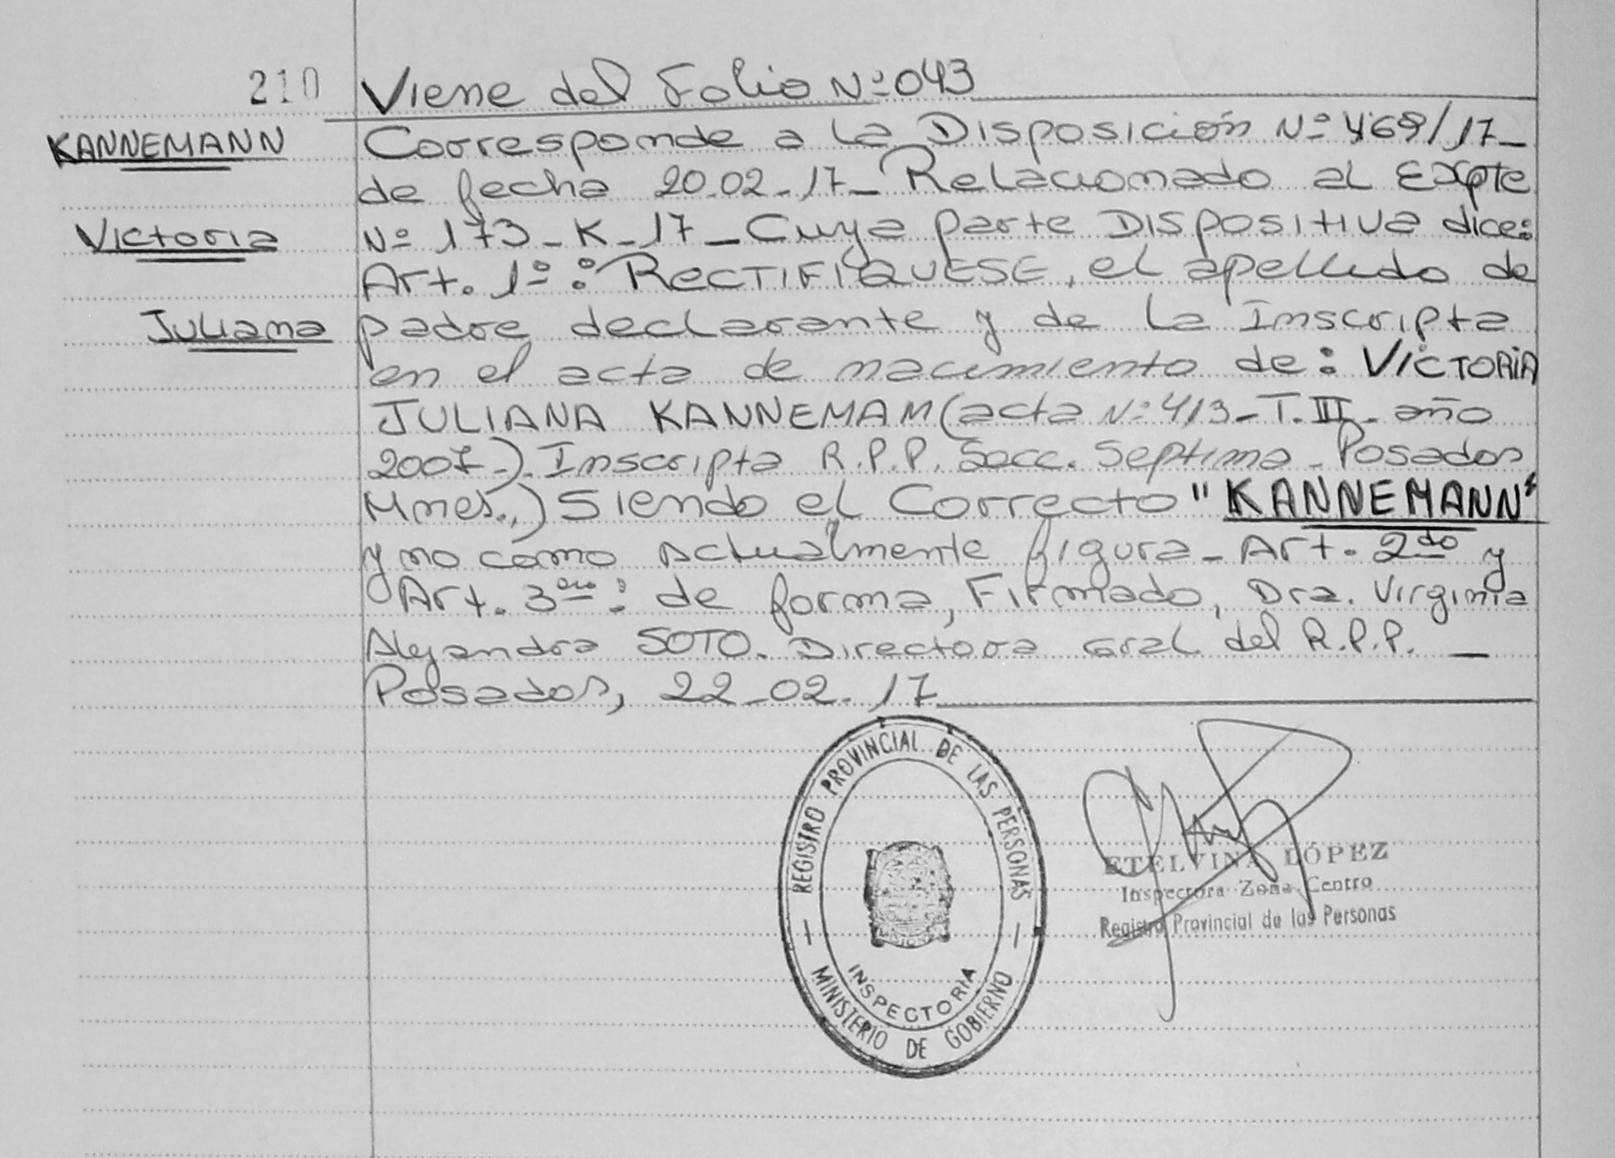 210
Viene del Folio Nº 043
KANNEMANN
Victoria
Juliana
Corresponde a la Disposición Nº 468/17_
de fecha 20.02-17_Relacionado al Expte
Nº 173_K_17_Cuya parte DISPOSITIVA dice:
Art. 1º: RECTIFIQUESE, el apellido de
padre declarante y de la Inscripta
en el acta de nacimiento de: VICTORIA
JULIANA KANNEMAM (acta Nº 413_T.III_año
2007_). Inscripta R.P.P. Secc. Septima_Posadas
Mnes.,) Siendo el Correcto "KANNEMANN"
y no como actualmente figura_Art. 2do y
Art. 3ero: de forma, Firmado, Dra. Virginia
Alejandra SOTO. Directora Gral del R.P.P. _
Posadas, 22_02-17
REGISTRO PROVINCIAL DE LAS PERSONAS
INSPECTORIA
MINISTERIO DE GOBIERNO
ETELVINA LÓPEZ
Inspectora Zona Centro
Registro Provincial de las Personas